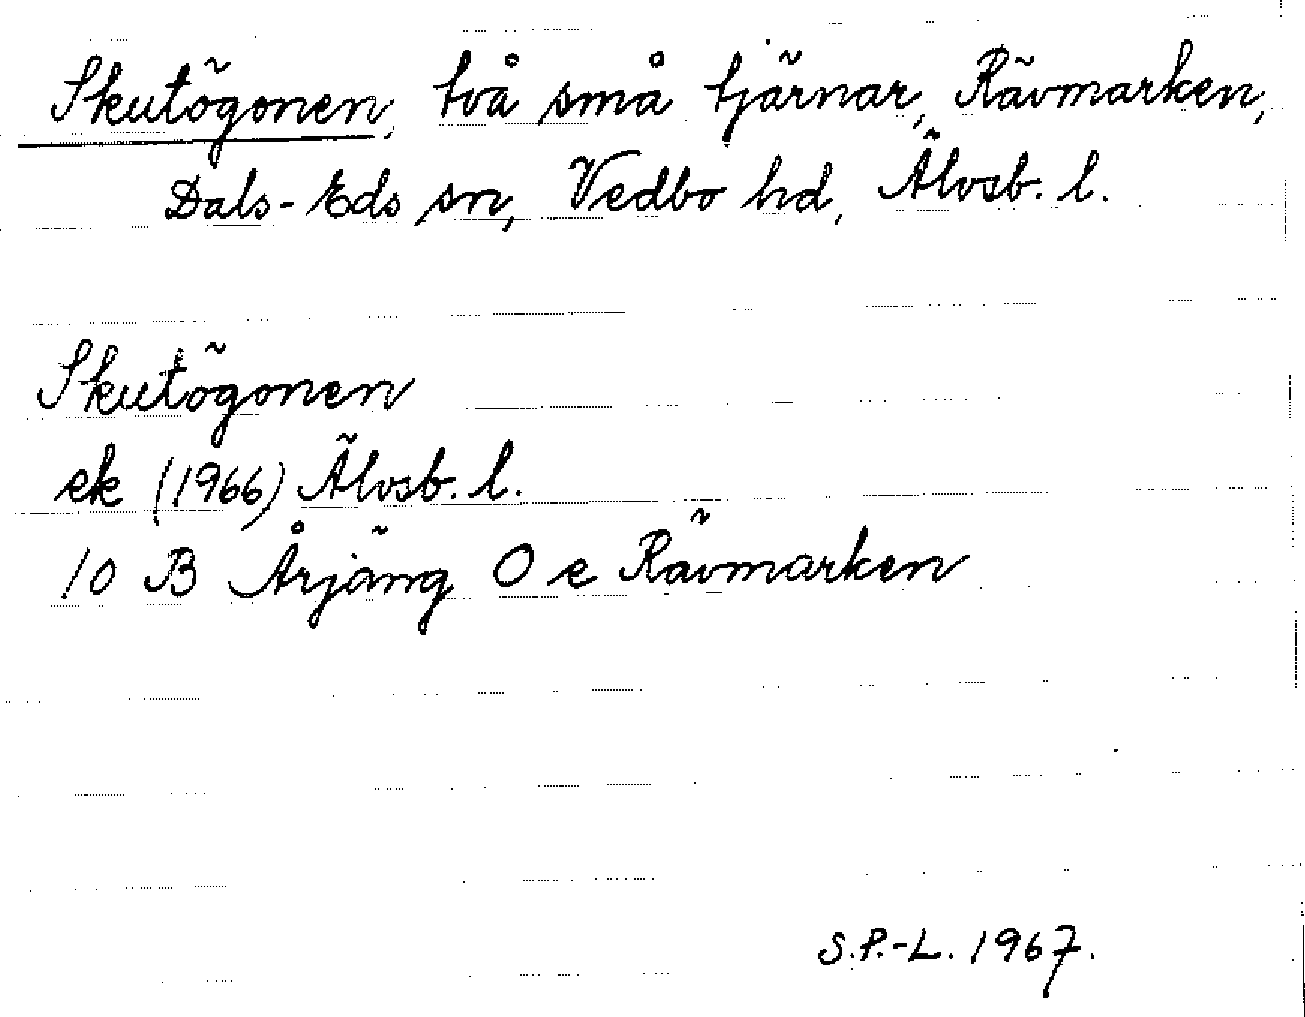 Skutögonen, två små tjärnar, Rävmarken,
Dals-Eds sn, Vedbo hd, Älvsb. l.
Skutögonen
ek (1966) Älvsb. l.
10 B Årjäng O e Rävmarken
S.P.-L. 1967.